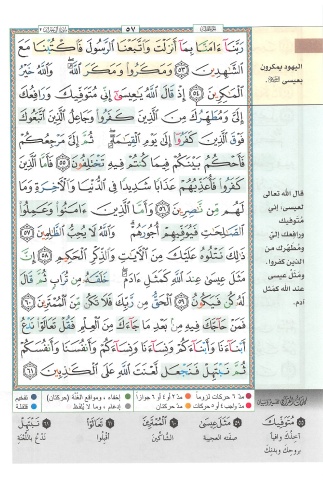 ٥٧
رَبَّنَآ ءَامَنَّا بِمَآ أَنزَلْتَ وَٱتَّبَعْنَا ٱلرَّسُولَ فَٱكْتُبْنَا مَعَ
ٱلشَّٰهِدِينَ ٥٣ وَمَكَرُوا۟ وَمَكَرَ ٱللَّهُ وَٱللَّهُ خَيْرُ
ٱلْمَٰكِرِينَ ٥٤ إِذْ قَالَ ٱللَّهُ يَٰعِيسَىٰٓ إِنِّى مُتَوَفِّيكَ وَرَافِعُكَ
إِلَىَّ وَمُطَهِّرُكَ مِنَ ٱلَّذِينَ كَفَرُوا۟ وَجَاعِلُ ٱلَّذِينَ ٱتَّبَعُوكَ
فَوْقَ ٱلَّذِينَ كَفَرُوٓا۟ إِلَىٰ يَوْمِ ٱلْقِيَٰمَةِ ثُمَّ إِلَىَّ مَرْجِعُكُمْ
فَأَحْكُمُ بَيْنَكُمْ فِيمَا كُنتُمْ فِيهِ تَخْتَلِفُونَ ٥٥ فَأَمَّا ٱلَّذِينَ
كَفَرُوا۟ فَأُعَذِّبُهُمْ عَذَابًا شَدِيدًا فِى ٱلدُّنْيَا وَٱلْءَاخِرَةِ وَمَا
لَهُم مِّن نَّٰصِرِينَ ٥٦ وَأَمَّا ٱلَّذِينَ ءَامَنُوا۟ وَعَمِلُوا۟
ٱلصَّٰلِحَٰتِ فَيُوَفِّيهِمْ أُجُورَهُمْ وَٱللَّهُ لَا يُحِبُّ ٱلظَّٰلِمِينَ ٥٧
ذَٰلِكَ نَتْلُوهُ عَلَيْكَ مِنَ ٱلْءَايَٰتِ وَٱلذِّكْرِ ٱلْحَكِيمِ ٥٨ إِنَّ
مَثَلَ عِيسَىٰ عِندَ ٱللَّهِ كَمَثَلِ ءَادَمَ خَلَقَهُۥ مِن تُرَابٍ ثُمَّ قَالَ
لَهُۥ كُن فَيَكُونُ ٥٩ ٱلْحَقُّ مِن رَّبِّكَ فَلَا تَكُن مِّنَ ٱلْمُمْتَرِينَ ٦٠
فَمَنْ حَآجَّكَ فِيهِ مِنۢ بَعْدِ مَا جَآءَكَ مِنَ ٱلْعِلْمِ فَقُلْ تَعَالَوْا۟ نَدْعُ
أَبْنَآءَنَا وَأَبْنَآءَكُمْ وَنِسَآءَنَا وَنِسَآءَكُمْ وَأَنفُسَنَا وَأَنفُسَكُمْ
ثُمَّ نَبْتَهِلْ فَنَجْعَل لَّعْنَتَ ٱللَّهِ عَلَى ٱلْكَٰذِبِينَ ٦١
اليهود يمكرون
بعيسى
قال الله تعالى
لعيسى: إني
متوفيك
ورافعك إليّ
ومطهرك من
الذين كفروا،
ومثل عيسى
عند الله كمثل
آدم.
مدّ ٦ حركات لزوماً مدّ ٢ أو ٤ أو ٦ جوازاً إخفاء، ومواقع الغُنَّة (حركتان) تفخيم
مدّ واجب ٤ أو ٥ حركات مدّ حركتان إدغام، وما لا يُلفظ قلقلة
٥٥ مُتَوَفِّيكَ
آخذك وافياً
بروحك وبدنك
٥٩ مَثَلَ عِيسَىٰ
صفته العجيبة
٦٠ ٱلْمُمْتَرِينَ
الشاكّين
٦١ تَعَالَوْا۟
أقبلوا
٦١ نَبْتَهِلْ
ندعُ باللعنة